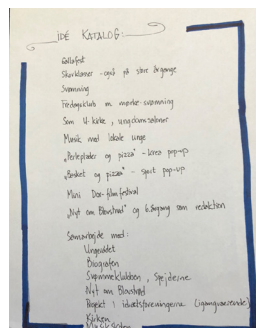 IDÉ KATALOG:
Gallafest
- også på store årgange
Svømning
Fredagsklub m. mørke-svømning
Som U-kirke, ungdomssaloner
Musik med lokale unge
"Perleplader og pizza" - krea pop-up
"Basket og pizza" - sport pop-up
Mini Dox-filmfestival
"Nyt om Blovstrød" og 6. årgang som redaktion
Samarbejde med:
Ungerådet
Biografen
Svømmeklubben, Spejderne
Nyt om Blovstrød
Projekt i idrætsforeningerne (igangværende)
Kirken